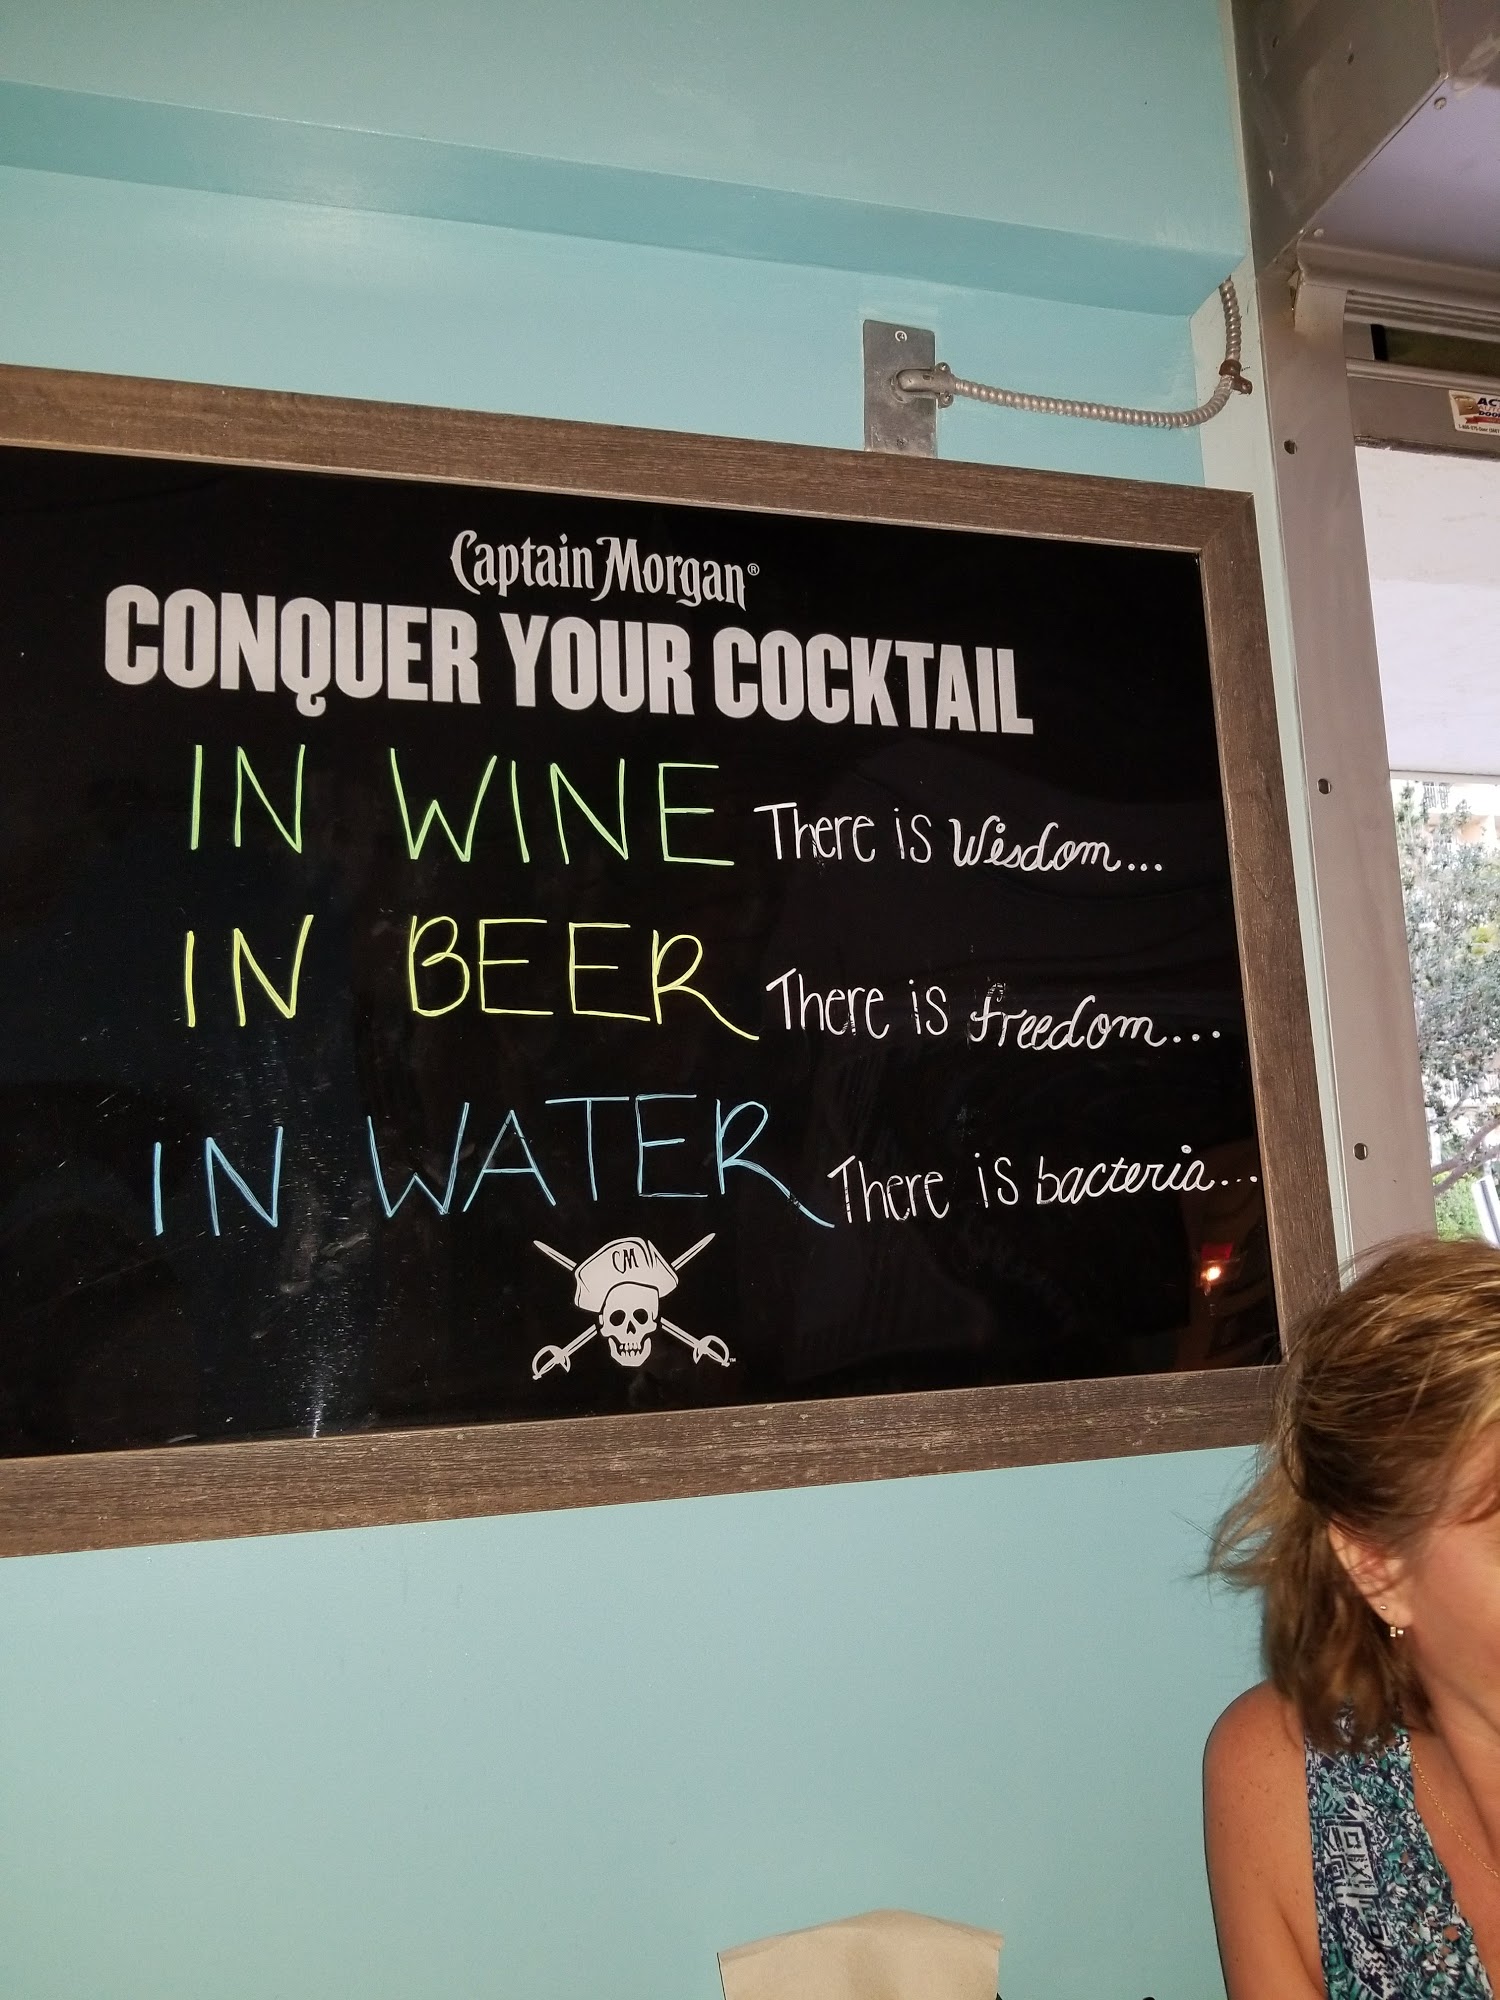 Captain Morgan®
CONQUER YOUR COCKTAIL
IN WINE There is Wisdom...
IN BEER There is freedom....
IN WATER There is bacteria...
CM
™